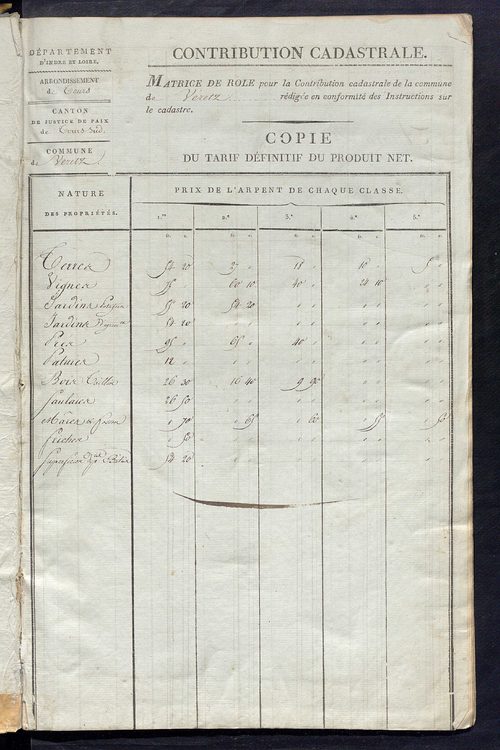 DÉPARTEMENT
D'INDRE ET LOIRE,
ARRONDISSEMENT
de Tours
CANTON
DE JUSTICE DE PAIX
de Tours Sud.
COMMUNE
de Veretz
CONTRIBUTION CADASTRALE.
MATRICE DE ROLE pour la Contribution cadastrale de la commune
de Veretz rédigée en conformité des Instructions sur
le cadastre.
COPIE
DU TARIF DÉFINITIF DU PRODUIT NET.
NATURE
DES PROPRIÉTÉS.
PRIX DE L'ARPENT DE CHAQUE CLASSE.
1.re 2.e 3.e 4.e 5.e
Terres 54 20 18 10 5
Vignes 75 60 10 40 24 10
Jardins 54 20
Jardins 54 20
Prés 95 65 40
Patures 12
Bois Taillis 26 30 16 40 9 90
Saulaies 26 50
Mares 70 65 60 55 50
Friches 50
54 20